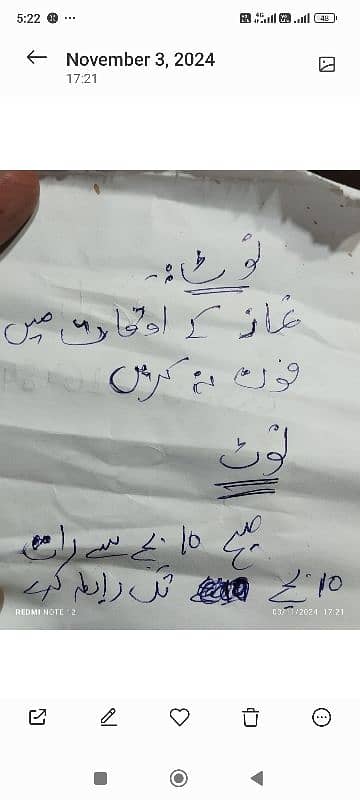 5:22
4G
48
November 3, 2024
17:21
نوٹ:۔
نماز کے اوقات میں
فون نہ کریں
نوٹ
صبح 10 بجے سے رات
10 بجے تک رابطہ کرے
REDMI NOTE 12
03/11/2024 17:21